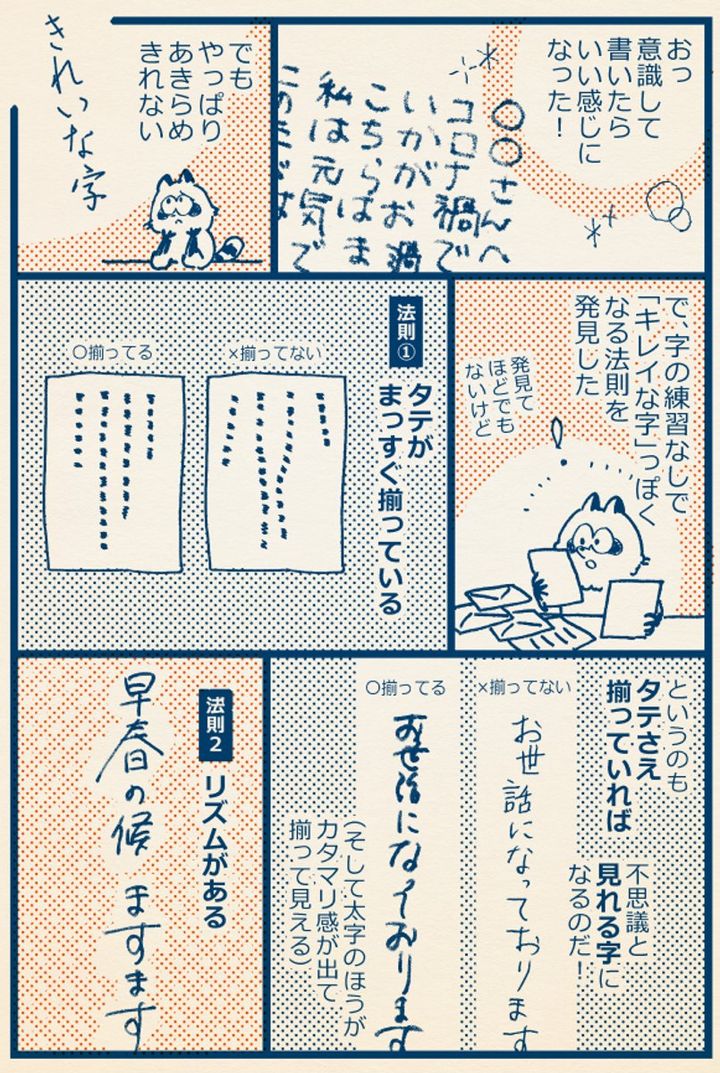 おっ
意識して
書いたら
いい感じに
なった!
〇〇さんへ
コロナ禍で
いかがお過
こちらはま
私は元気で
でも
やっぱり
あきらめ
きれない
きれいな字
で、字の練習なしで
「キレイな字」っぽく
なる法則を
発見した
発見て
ほどでも
ないけど
法則①
タテが
まっすぐ揃っている
×揃ってない
〇揃ってる
というのも
タテさえ
揃っていれば
不思議と
見れる字に
なるのだ!
×揃ってない
お世話になっております
〇揃ってる
お世話になっております
(そして太字のほうが
カタマリ感が出て
揃って見える)
法則2
リズムがある
早春の候
ますます